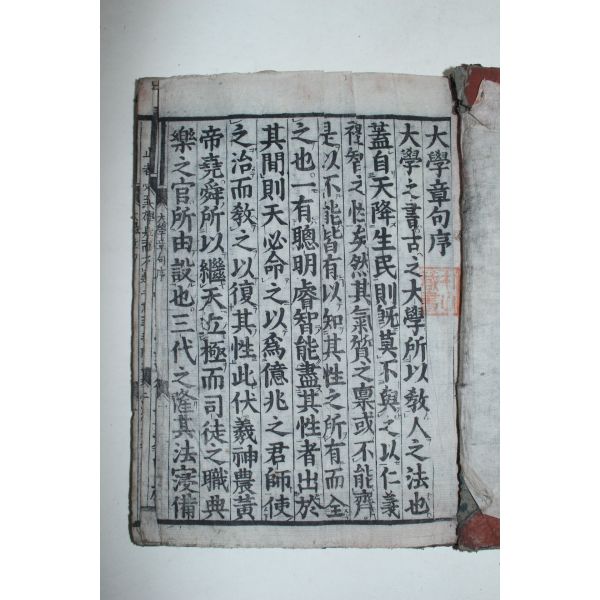 大學章句序
大學之書古之大學所以敎人之法也
蓋自天降生民則旣莫不與之以仁義
禮智之性矣然其氣質之稟或不能齊
是以不能皆有以知其性之所有而全
之也一有聰明睿智能盡其性者出於
其間則天必命之以爲億兆之君師使
之治而敎之以復其性此伏羲神農黃
帝堯舜所以繼天立極而司徒之職典
樂之官所由設也三代之隆其法寖備
大學章句序